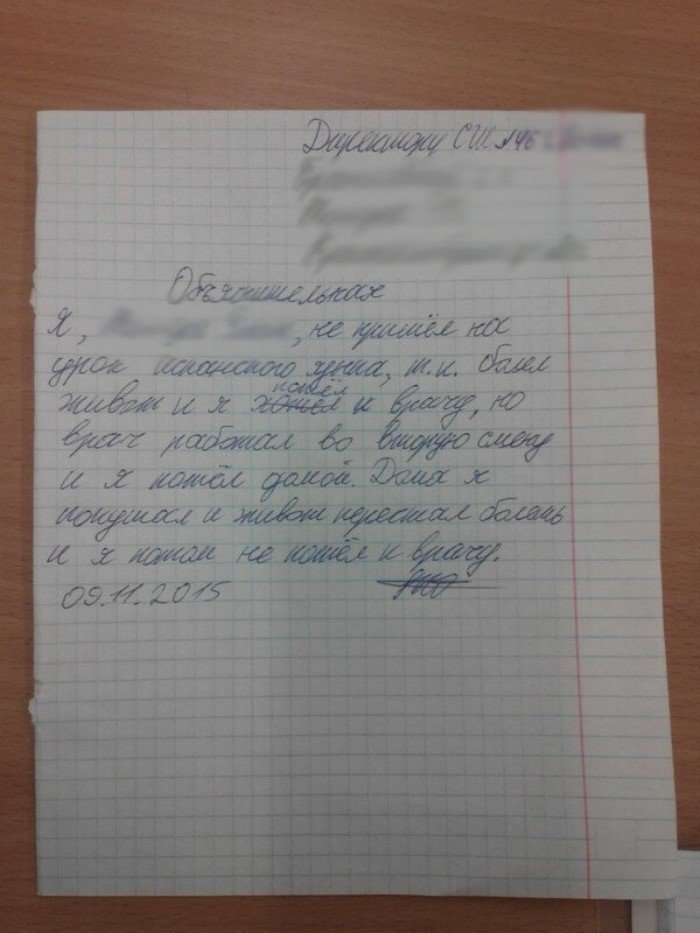 Директору СШ №46
Объяснительная
Я, не пришёл на
урок испанского языка, т.к. болел
пошёл
живот и я к врачу, но
врач работал во вторую смену
и я пошёл домой. Дома я
покушал и живот перестал болеть
и я потом не пошёл к врачу.
09.11.2015